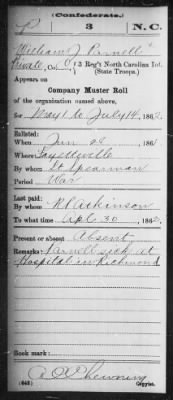 (Confederate.)
P 3 N.C.
William J. Parnell
Private, Co. 3 Reg't North Carolina Inf.
(State Troops.)
Appears on
Company Muster Roll
of the organization named above,
for May 1 to July 14, 1862.
Enlisted:
When Jun 28, 1861
Where Fayetteville
By whom Lt Spearman
Period War
Last paid:
By whom R Atkinson
To what time Apl 30, 1862.
Present or absent Absent
Remarks: Parnell sick at
Hospital in Richmond
Book mark:
(642) Copyist.